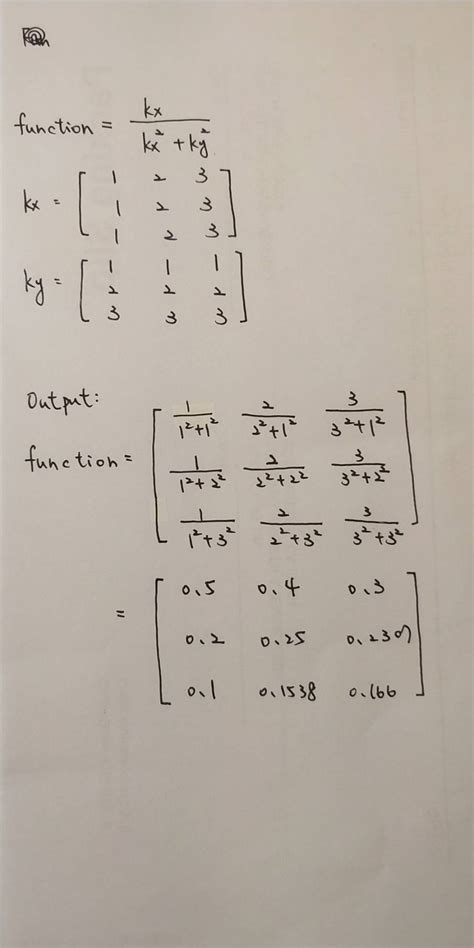 function = kx / (kx² + ky²)
kx = [ 1 2 3
1 2 3
1 2 3 ]
ky = [ 1 1 1
2 2 2
3 3 3 ]
Output:
function = [ 1/(1²+1²) 2/(2²+1²) 3/(3²+1²)
1/(1²+2²) 2/(2²+2²) 3/(3²+2²)
1/(1²+3²) 2/(2²+3²) 3/(3²+3²) ]
= [ 0.5 0.4 0.3
0.2 0.25 0.2307
0.1 0.1538 0.166 ]